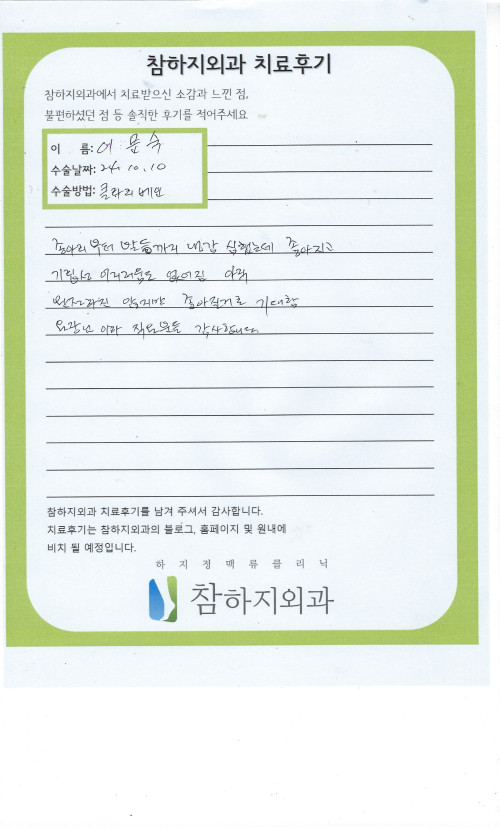 참하지외과 치료후기
참하지외과에서 치료받으신 소감과 느낀 점,
불편하셨던 점 등 솔직한 후기를 적어주세요
이 름: 이 문숙
수술날짜: 24. 10. 10
수술방법: 클라리베인
종아리부터 발등까지 냉감 심했는데 좋아지고
기립성 어지러움도 없어짐 아직
완전하진 않지만 좋아질거로 기대함
원장님 이하 직원분들 감사합니다.
참하지외과 치료후기를 남겨 주셔서 감사합니다.
치료후기는 참하지외과의 블로그, 홈페이지 및 원내에
비치 될 예정입니다.
하지정맥류클리닉
참하지외과